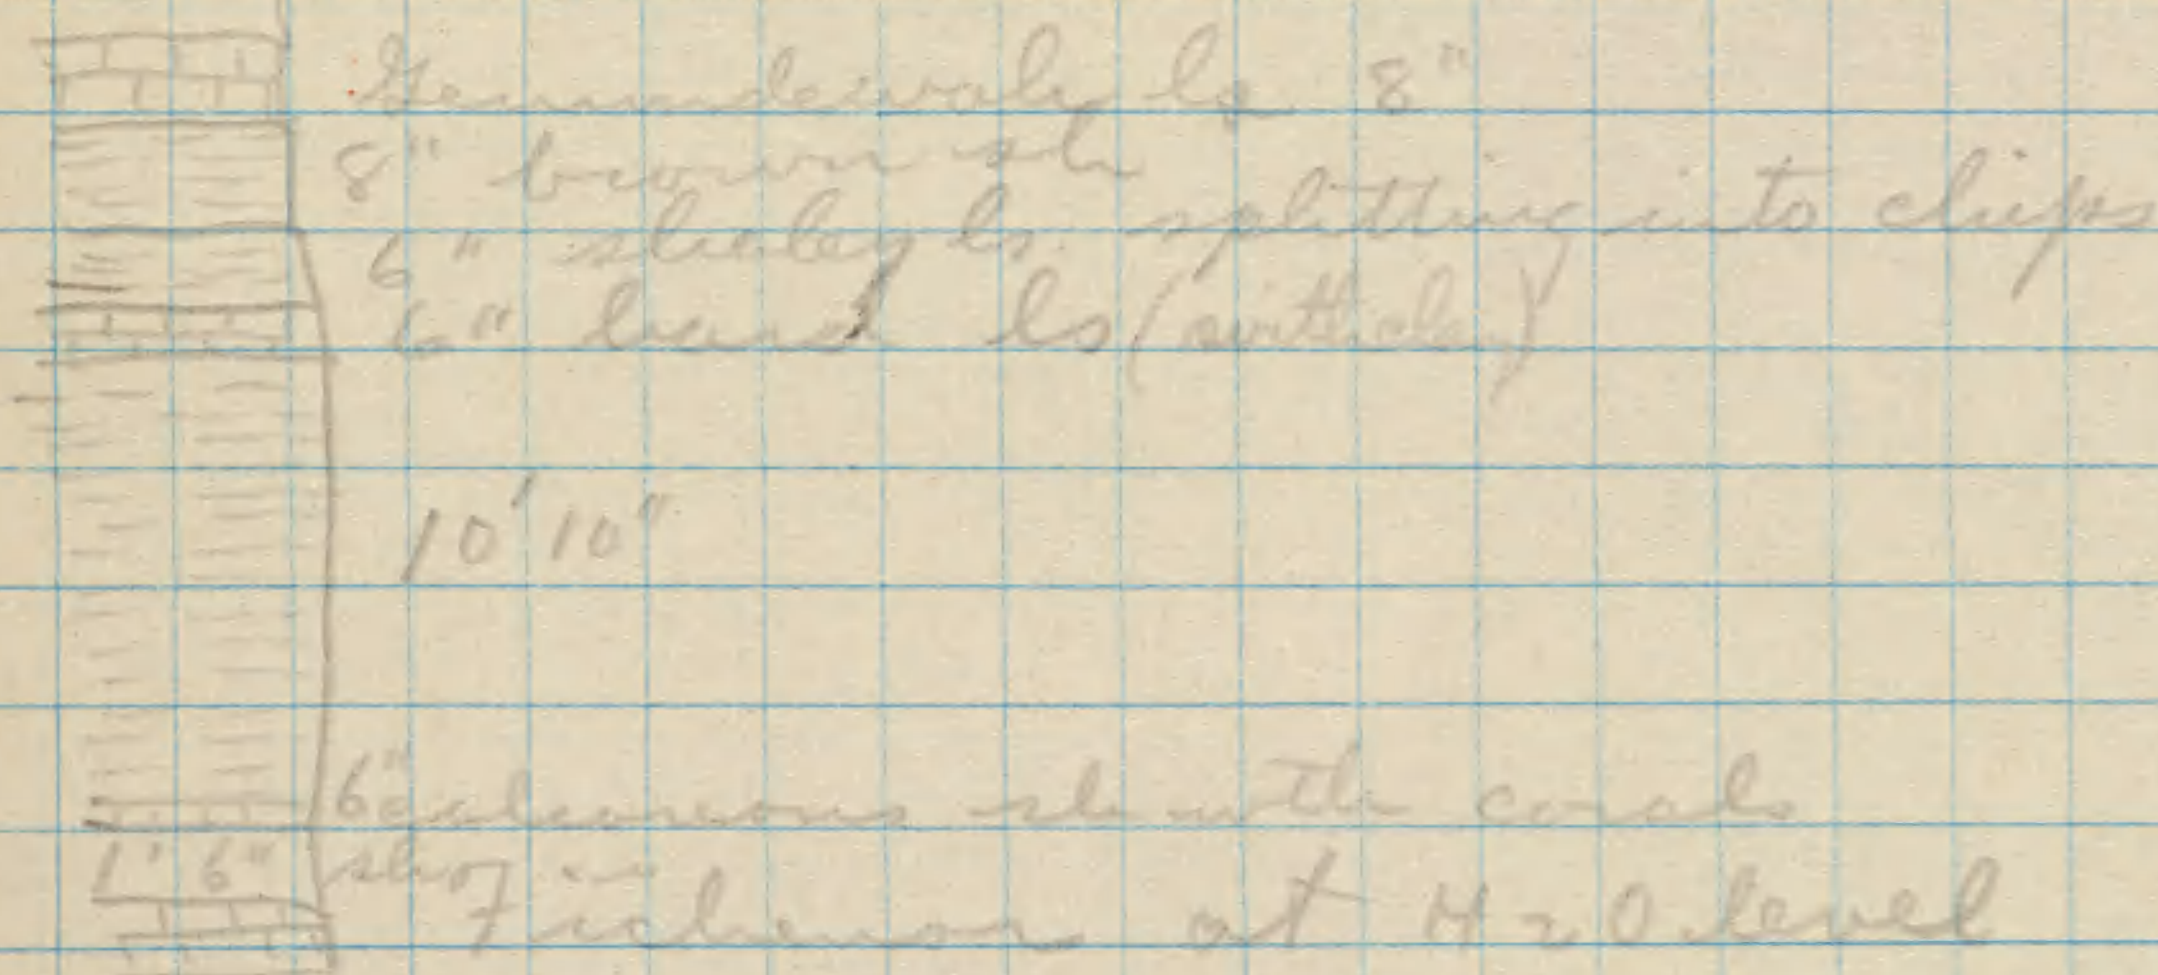 Genundewah ls 8"
8" brown sh
6" shaley ls. splitting into chips
6" hard ls
10' 10"
6" calcareous sh with corals
1' 6"
Tichenor at H2O level